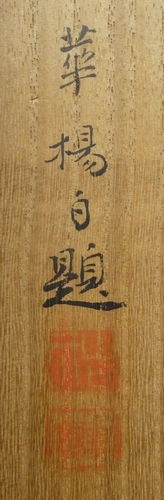 華楊自題